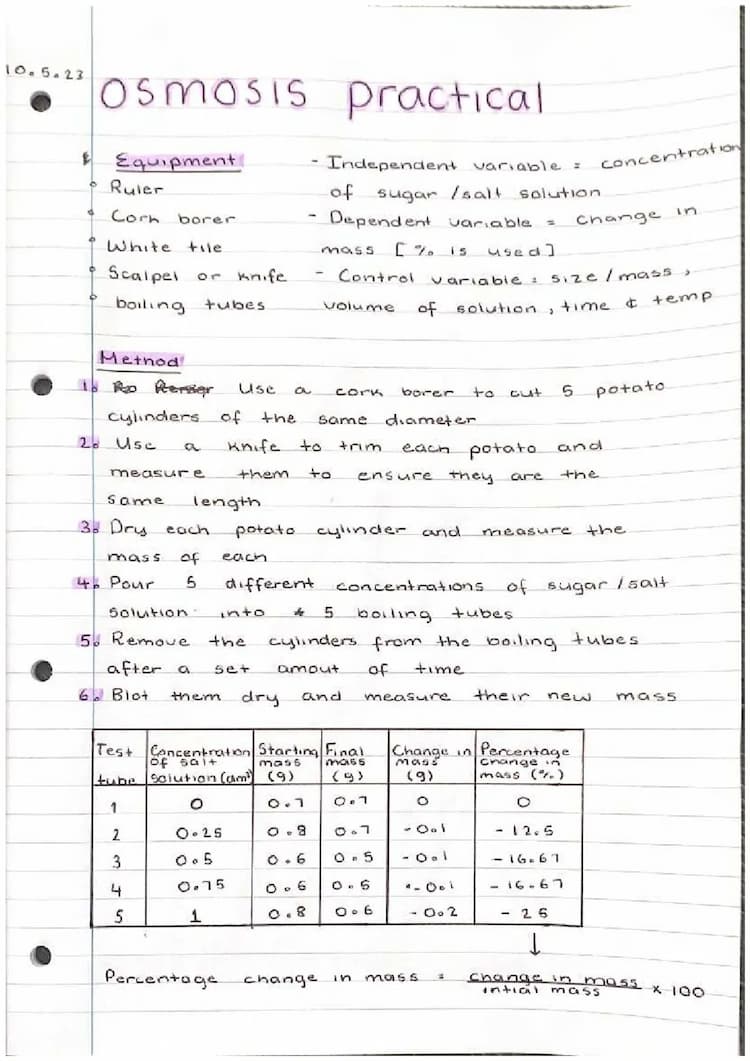 10.5.23
OSMOSIS practical
Equipment
Ruler
Cork borer
White tile
Scalpel or knife
boiling tubes
- Independent variable = concentration
of sugar /salt solution
- Dependent variable = change in
mass [% is used]
- Control variable = size/mass,
volume of solution, time & temp
Method
1. Use a cork borer to cut 5 potato
cylinders of the same diameter
2. Use a knife to trim each potato and
measure them to ensure they are the
same length
3. Dry each potato cylinder and measure the
mass of each
4. Pour 5 different concentrations of sugar/salt
solution into 5 boiling tubes
5. Remove the cylinders from the boiling tubes
after a set amout of time
6. Blot them dry and measure their new mass
Test tube | Concentration of salt solution (dm³) | Starting mass (g) | Final mass (g) | Change in mass (g) | Percentage change in mass (%)
1 | 0 | 0.7 | 0.7 | 0 | 0
2 | 0.25 | 0.8 | 0.7 | -0.1 | -12.5
3 | 0.5 | 0.6 | 0.5 | -0.1 | -16.67
4 | 0.75 | 0.6 | 0.5 | -0.1 | -16.67
5 | 1 | 0.8 | 0.6 | -0.2 | -25
Percentage change in mass = change in mass / intial mass × 100